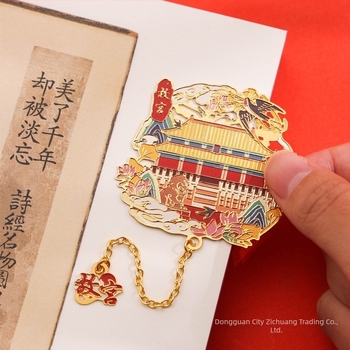 美了千年
却被淡忘
詩經名物圖
故宫
故宫
Dongguan City Zichuang Trading Co.,
Ltd.